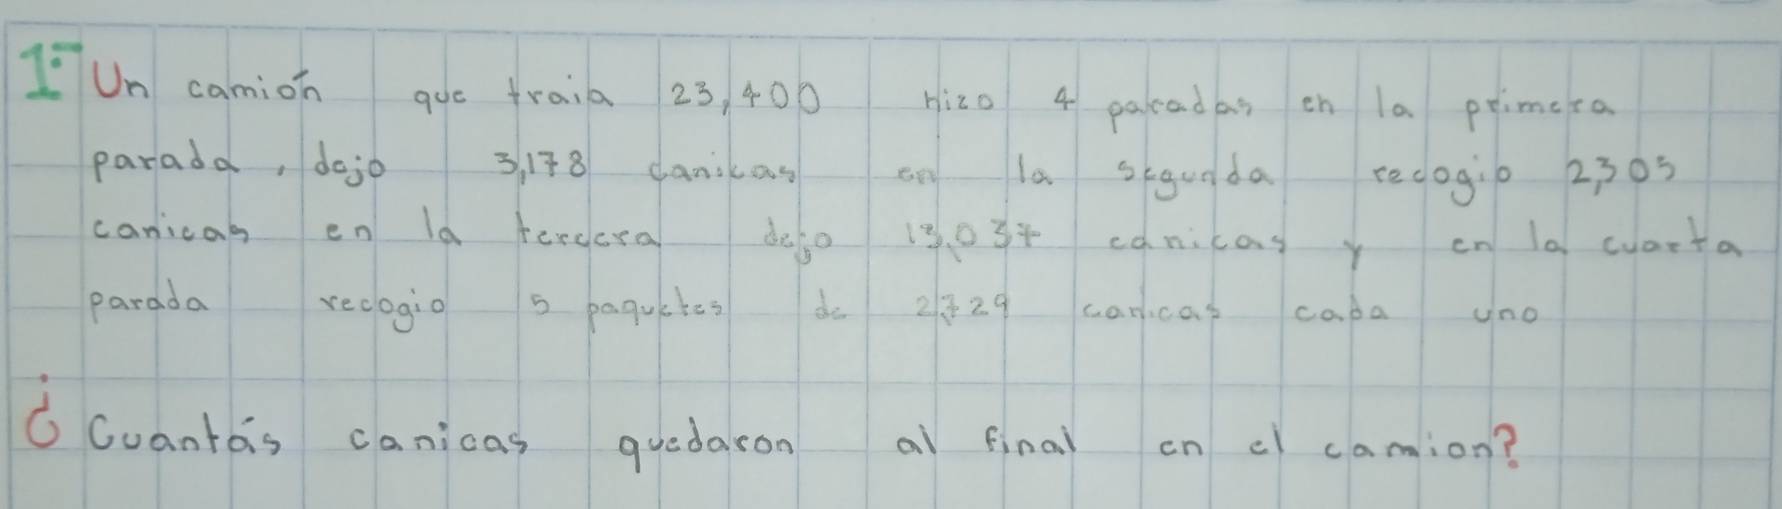 1.- Un camión que traia 23,400 Hizo 4 paradas en la primera
parada, dejo 3,178 canicas en la segunda recogio 2,305
canicas en la tercera dejo 13,037 canicas y en la cuarta
parada recogio 5 paquetes de 2,729 canicas cada uno
¿Cuantás canicas quedaron al final en el camion?